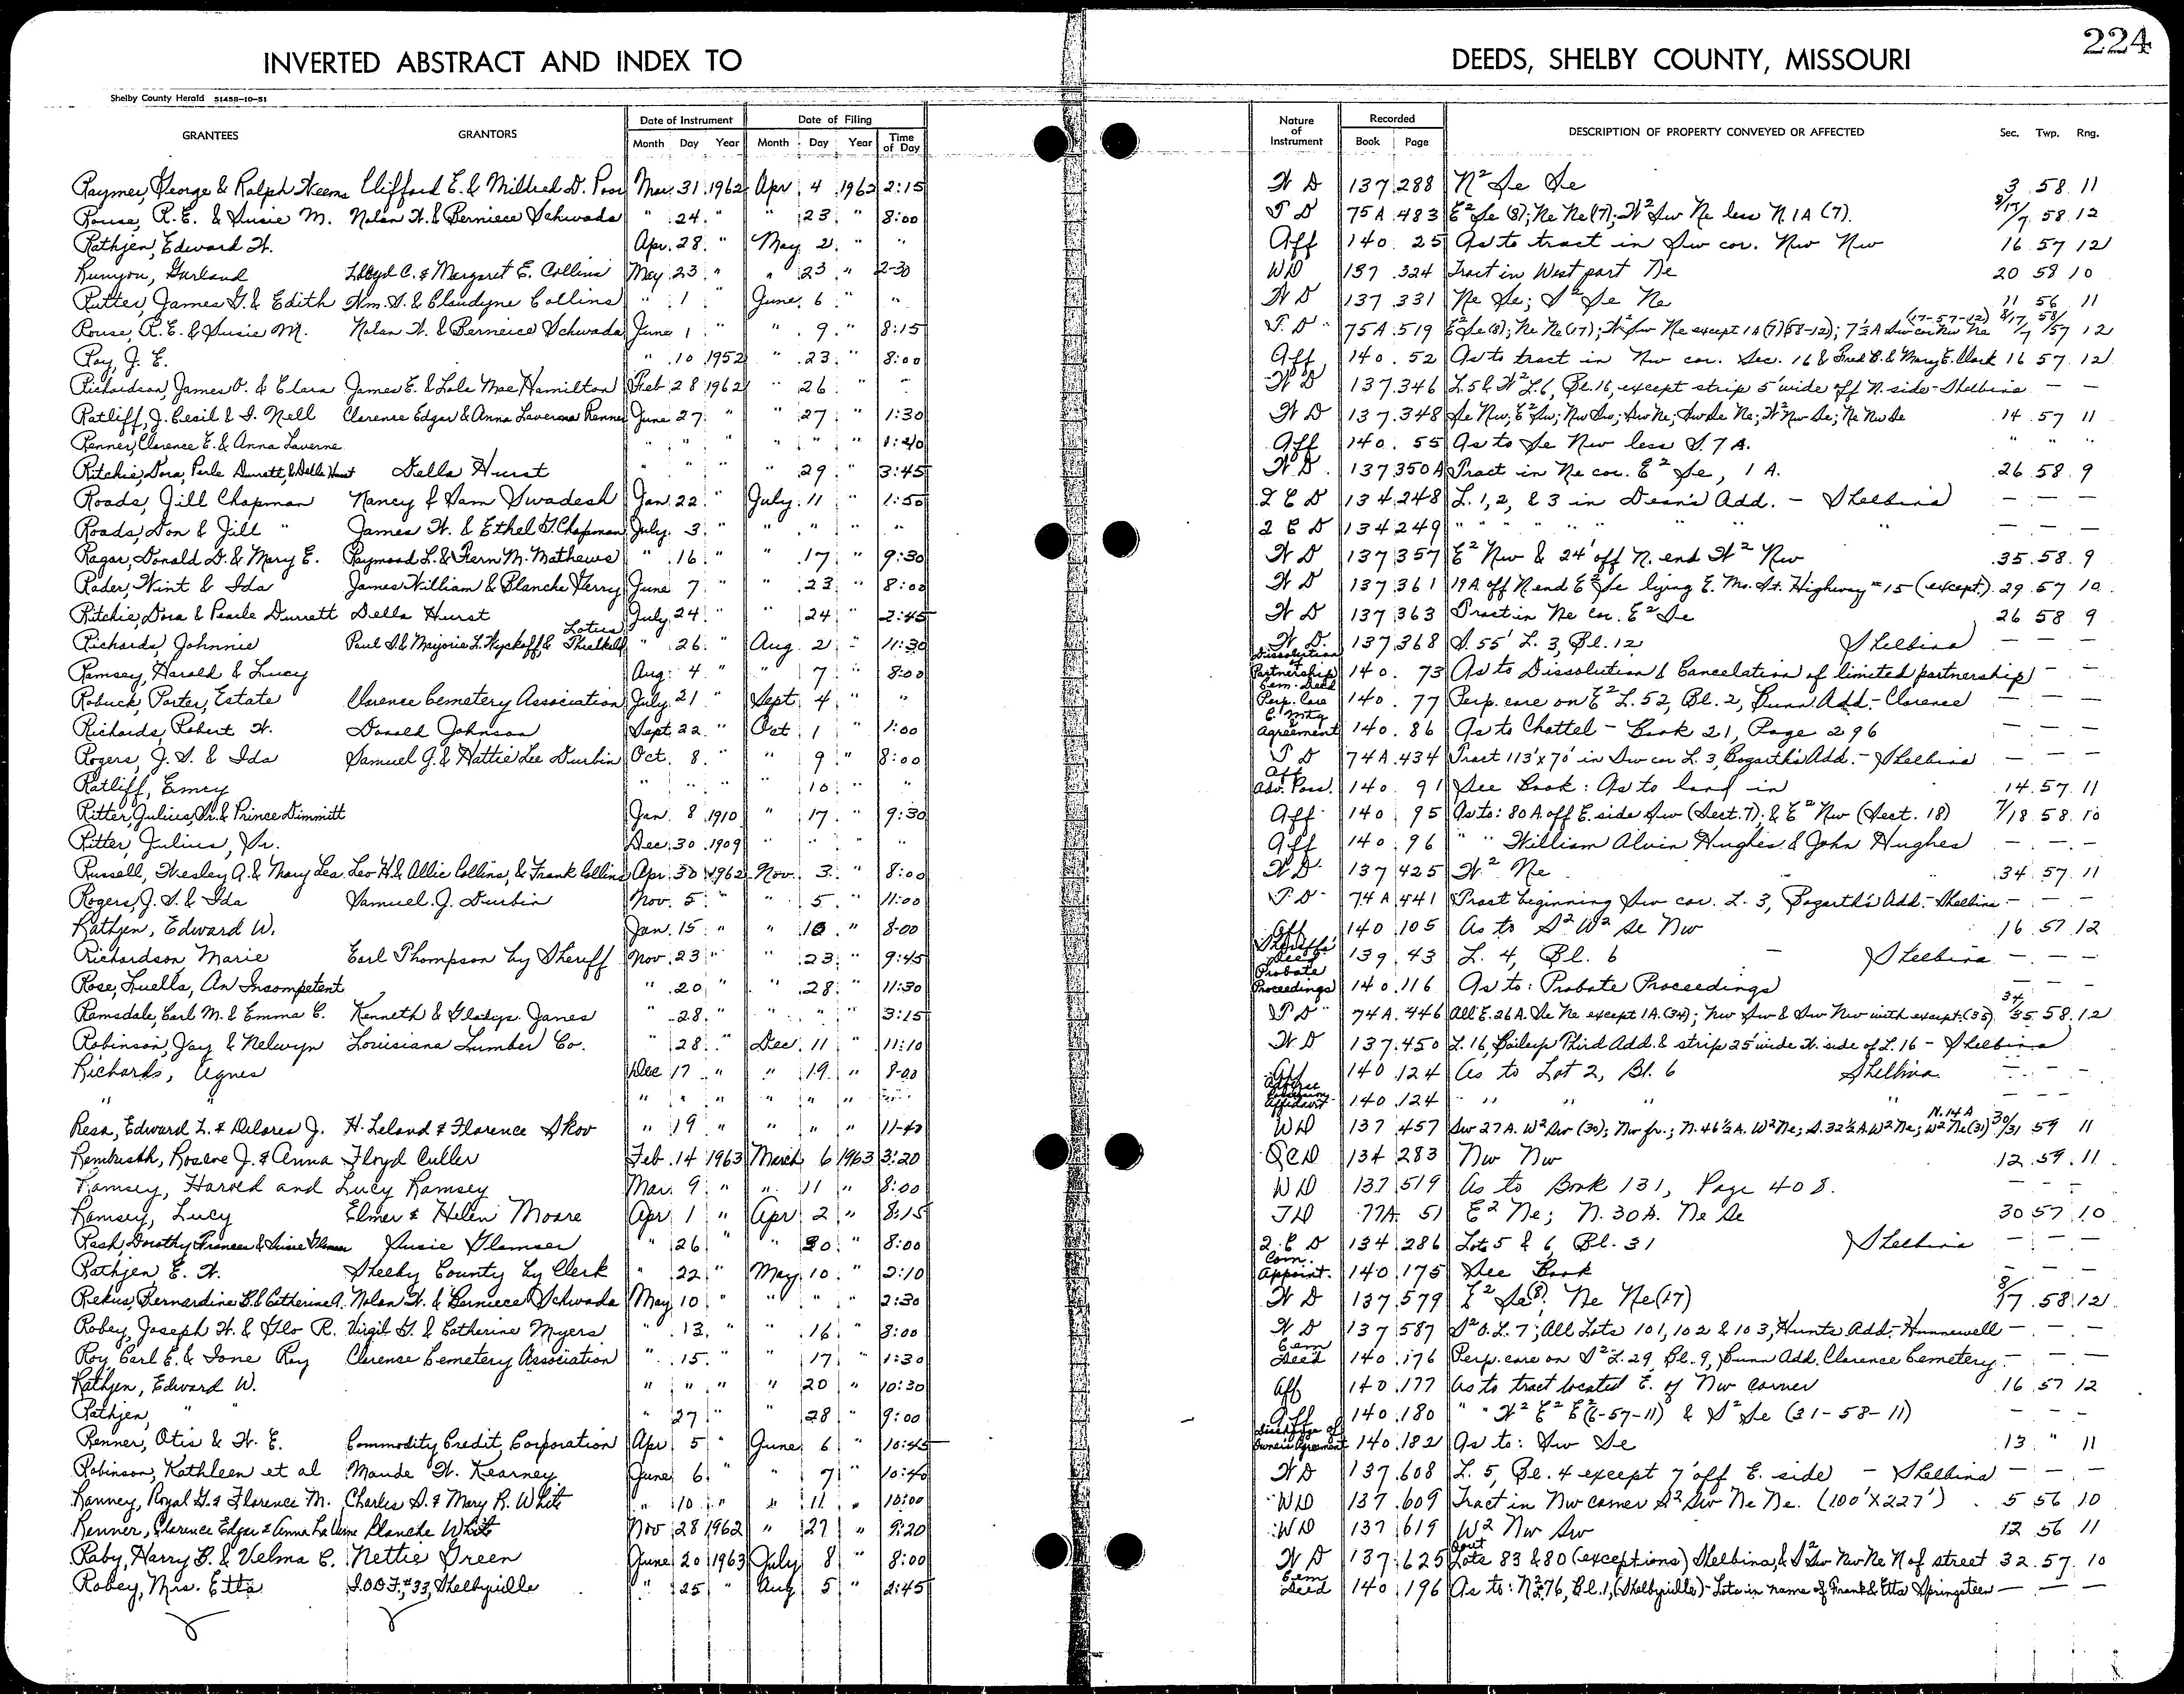 224
INVERTED ABSTRACT AND INDEX TO DEEDS, SHELBY COUNTY, MISSOURI
Shelby County Herald 51458-10-51
GRANTEES GRANTORS Date of Instrument Date of Filing Nature of Instrument Recorded DESCRIPTION OF PROPERTY CONVEYED OR AFFECTED Sec. Twp. Rng.
Month Day Year Month Day Year Time of Day Book Page
Raymer, George & Ralph Weems Clifford E. & Mildred D. Poor Mar. 31 1962 Apr 4 1962 2:15 W D 137 288 N² Se Se 3 58 11
Rouse, R.E. & Susie M. Nolan H. & Berniece Schwada " 24 " " 23 " 8:00 T D 75A 483 E² Se (8); Ne Ne (17); W² Sw Ne less N 1A (7). 8/17/7 58 12
Rathjen, Edward W. Apr. 28 " May 2 " " Aff 140 25 As to tract in Sw cor. Nw Nw 16 57 12
Runyon, Garland Lloyd C. & Margaret E. Collins May 23 " " 23 " 2-30 WD 137 324 Tract in West part Ne 20 58 10
Rutter, James G. & Edith Wm. S. & Claudyne Collins " 1 " June 6 " " W D 137 331 Ne Se; S² Se Ne 11 56 11
Rouse, R.E. & Susie M. Nolan H. & Berniece Schwada June 1 " " 9 " 8:15 T D 75A 519 E² Se (8); Ne Ne (17); W² Sw Ne except 1A (7)(58-12); 7½ A Sw cor Nw Ne (17-57-12) 8/17/7 58/57 12
Roy, J. E. " 10 1952 " 23 " 8:00 Aff 140 52 As to tract in Nw cor. Sec. 16 & Fred B. & Mary E. Clark 16 57 12
Richardson, James O. & Clara James E. & Lola Mae Hamilton Feb 28 1962 " 26 " " W D 137 346 L. 5 & W² L. 6, Bl. 16, except strip 5' wide off N. side - Shelbina — —
Ratliff, J. Cecil & I. Nell Clarence Edgar & Anna Laverna Renner June 27 " " 27 " 1:30 W D 137 348 Se Nw; E² Sw; Nw Sw; Sw Ne; Sw Se Ne; W² Nw Se; Ne Nw Se 14 57 11
Renner, Clarence E. & Anna Laverne " " " " " " 1:40 Aff 140 55 As to Se Nw less S. 7 A. " " "
Ritchie, Dora, Perle Durrett, & Della Hurst Della Hurst " " " " 29 " 3:45 W D 137 350A Tract in Ne cor. E² Se, 1 A. 26 58 9
Roads, Jill Chapman Nancy & Sam Swadesh Jan 22 " July 11 " 1:50 Q C D 134 248 L. 1, 2, & 3 in Dean's Add. - Shelbina — — —
Roads, Don & Jill " James W. & Ethel G. Chapman July 3 " " " " " Q C D 134 249 " " " " " " " — — —
Ragar, Donald D. & Mary E. Raymond L. & Fern M. Mathews " 16 " " 17 " 9:30 W D 137 357 E² Nw & 24' off N. end W² Nw 35 58 9
Rader, Wint & Ida James William & Blanche Perry June 7 " " 23 " 8:00 W D 137 361 19 A. off N end E² Se lying E. Mo. St. Highway #15 (except) 29 57 10
Ritchie, Dora & Pearle Durrett Della Hurst July 24 " " 24 " 2:45 W D 137 363 Tract in Ne cor. E² Se 26 58 9
Richards, Johnnie Paul S. & Marjorie L. Wyckoff, & Lotus Threlkeld " 26 " Aug. 2 " 11:30 W D 137 368 S. 55' L. 3, Bl. 12 Shelbina — — —
Ramsey, Harold & Lucy Aug. 4 " " 7 " 8:00 Dissolution of Partnership 140 73 As to Dissolution & Cancelation of limited partnership — — —
Robuck, Porter, Estate Clarence Cemetery Association July 21 " Sept 4 " " Cem. Deed Perp. Care 140 77 Perp. care on E² L. 52, Bl. 2, Bunn Add. - Clarence — — —
Richards, Robert H. Donald Johnson Sept 22 " Oct 1 " 1:00 Agreement 140 86 As to Chattel - Book 21, Page 296 — — —
Rogers, J. S. & Ida Samuel J. & Hattie Lee Durbin Oct. 8 " " 9 " 8:00 T D 74A 434 Tract 113' x 70' in Sw cor L. 3, Bogarth's Add. - Shelbina — — —
Ratliff, Emcy " " " " 10 " " Aff Adv. Poss. 140 91 See Book: As to land in 14 57 11
Ritter, Julius, Sr. & Prince Dimmitt Jan. 8 1910 " 17 " 9:30 Aff 140 95 As to: 80 A. off E. side Sw (Sect. 7); & E² Nw (Sect. 18) 7/18 58 10
Ritter, Julius, Sr. Dec. 30 1909 " " " " Aff 140 96 " " William Alvin Hughes & John Hughes — — —
Russell, Wesley A. & Mary Lea Leo H. & Allie Collins, & Frank Collins Apr. 30 1962 Nov. 3 " 8:00 W D 137 425 W² Ne 34 57 11
Rogers, J. S. & Ida Samuel J. Durbin Nov. 5 " " 5 " 11:00 T D 74A 441 Tract beginning Sw cor. L. 3, Bogarth's Add. - Shelbina — — —
Rathjen, Edward W. Jan. 15 " " 10 " 8-00 Aff 140 105 As to S² W² Se Nw 16 57 12
Richardson Marie Earl Thompson by Sheriff Nov 23 " " 23 " 9:45 Sheriff's Deed 139 43 L. 4, Bl. 6 — Shelbina — — —
Rose, Luella, An Incompetent " 20 " " 28 " 11:30 Probate Proceedings 140 116 As to: Probate Proceedings — — —
Ramsdale, Carl M. & Emma C. Kenneth & Gladys Janes " 28 " " " " 3:15 T D 74A 446 All E. 26 A. Se Ne except 1A. (34); Nw Sw & Sw Nw with except. (35) 34/35 58 12
Robinson, Jay & Nelwyn Louisiana Lumber Co. " 28 " Dec. 11 " 11:10 W D 137 450 L. 16, Bailey's Third Add. & strip 25' wide W. side of L. 16 - Shelbina
Richards, Agnes Dec 17 " " 19 " 8-00 Aff 140 124 As to Lot 2, Bl. 6 Shelbina — — —
" " " " " " " " " Affidavit 140 124 " " " " " — — —
Resa, Edward L. & Delores J. H. Leland & Florence Skov " 19 " " " " 11-40 WD 137 457 Sw 27 A. W² Sw (30); Nw fr.; N. 46½ A. W² Ne; S. 32½ A. W² Ne; N. 14 A W² Ne (31) 30/31 59 11
Rembusth, Roscoe J. & Anna Floyd Culler Feb. 14 1963 March 6 1963 3:20 QCD 134 283 Nw Nw 12 59 11
Ramsey, Harold and Lucy Ramsey Mar. 9 " " 11 " 8:00 WD 137 519 As to Book 131, Page 408. — — —
Ramsey, Lucy Elmer & Helen Moore Apr 1 " Apr 2 " 8:15 TD 77A 51 E² Ne; N. 30 A. Ne Se 30 57 10
Rash, Dorothy Frances & Susie Glamser Susie Glamser " 26 " " 30 " 8:00 Q C D 134 286 Lots 5 & 6, Bl. 31 Shelbina — — —
Rathjen E. W. Shelby County by Clerk " 22 " May 10 " 2:10 Com. Appoint. 140 175 See Book — — —
Rekus, Bernardine B. & Catherine A. Nolan H. & Berniece Schwada May 10 " " " " 2:30 W D 137 579 E² Se (8); Ne Ne (17) 8/17 58 12
Robey, Joseph W. & Flo R. Virgil G. & Catherine Myers " 13 " " 16 " 8:00 W D 137 587 S² O.L. 7; All Lots 101, 102 & 103, Hunts Add. - Hunnewell — — —
Roy, Carl E. & Ione Roy Clarence Cemetery Association " 15 " " 17 " 1:30 Cem Deed 140 176 Perp. care on S² L. 29, Bl. 9, Bunn Add. Clarence Cemetery — — —
Rathjen, Edward W. " " " " 20 " 10:30 Aff 140 177 As to tract located E. of Nw corner 16 57 12
Rathjen, " " " 27 " " 28 " 9:00 Aff 140 180 " " W² E² E² (6-57-11) & S² Se (31-58-11) — — —
Renner, Otis & W. E. Commodity Credit Corporation Apr 5 " June 6 " 10:45 Discharge of Owner's Agreement 140 182 As to: Sw Se 13 " 11
Robinson, Kathleen et al Maude W. Kearney June 6 " " 7 " 10:40 W D 137 608 L. 5, Bl. 4 except 7' off E. side - Shelbina — — —
Ranney, Royal G. & Florence M. Charles S. & Mary R. White " 10 " " 11 " 10:00 WD 137 609 Tract in Nw corner S² Sw Ne Ne. (100' X 227') 5 56 10
Renner, Clarence Edgar & Anna LaVerne Blanche White Nov 28 1962 " 27 " 9:20 WD 137 619 W² Nw Sw 12 56 11
Raby, Harry B. & Velma C. Nettie Green June 20 1963 July 8 " 8:00 W D 137 625 Lots 83 & 80 (exceptions) Shelbina, & S² Sw Nw Ne N of street 32 57 10
Robey, Mrs. Etta I.O.O.F. #33, Shelbyville " 25 " Aug 5 " 2:45 Cem Deed 140 196 As to: N² 76, Bl. 1, (Shelbyville) - Lots in name of Frank & Etta Springsteen — — —